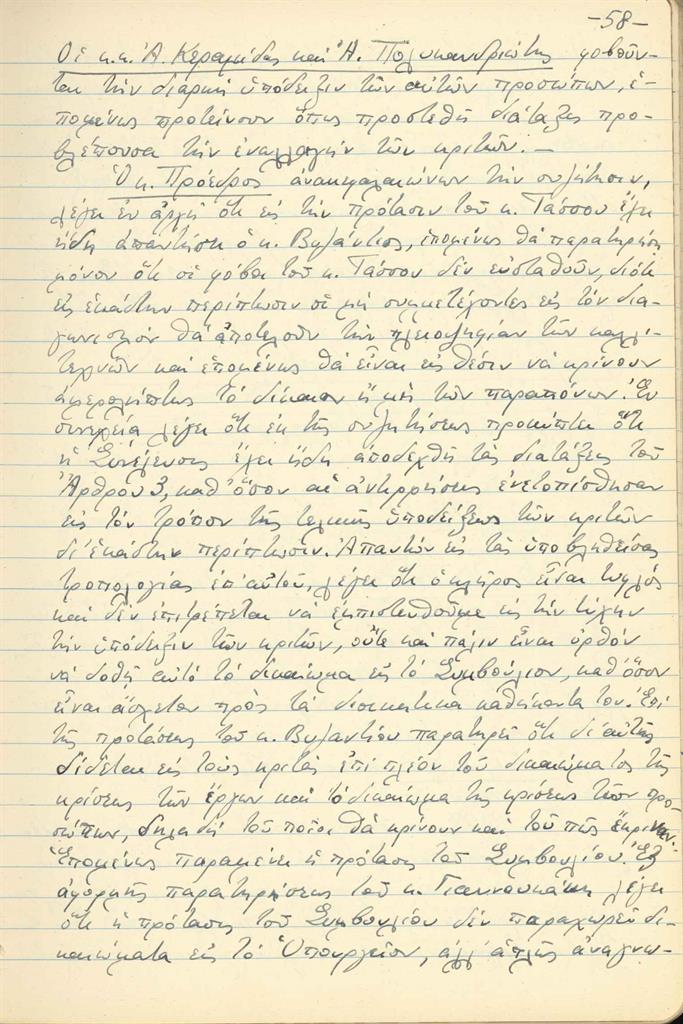 -58-
Οἱ κ.κ. Ἀ. Κεραμίδας καὶ Ἀ. Πολυκανδριώτης φοβοῦν-
ται τὴν διαρκῆ ὑπόδειξιν τῶν αὐτῶν προσώπων, ἑ-
πομένως προτείνουν ὅπως προστεθῇ διάταξις προ-
βλέπουσα τὴν ἐναλλαγὴν τῶν κριτῶν. —
Ὁ κ. Πρόεδρος ἀνακεφαλαιώνων τὴν συζήτησιν,
λέγει ἐν ἀρχῇ ὅτι εἰς τὴν πρότασιν τοῦ κ. Τάσσου ἔχει
ἤδη ἀπαντήσει ὁ κ. Βυζάντιος, ἑπομένως θὰ παρατηρήσῃ
μόνον ὅτι οἱ φόβοι τοῦ κ. Τάσσου δὲν εὐσταθοῦν, διότι
εἰς ἑκάστην περίπτωσιν οἱ μὴ συμμετέχοντες εἰς τὸν δια-
γωνισμὸν θὰ ἀποτελοῦν τὴν πλειοψηφίαν τῶν καλλι-
τεχνῶν καὶ ἑπομένως θὰ εἶναι εἰς θέσιν νὰ κρίνουν
ἀμερολήπτως τὸ δίκαιον ἢ μὴ τῶν παραπόνων. Ἐν
συνεχείᾳ λέγει ὅτι ἐκ τῆς συζητήσεως προκύπτει ὅτι
ἡ Συνέλευσις ἔχει ἤδη ἀποδεχθῇ τὰς διατάξεις τοῦ
Ἄρθρου 3, καθ' ὅσον αἱ ἀντιρρήσεις ἐνετοπίσθησαν
εἰς τὸν τρόπον τῆς τελικῆς ὑποδείξεως τῶν κριτῶν
δι' ἑκάστην περίπτωσιν. Ἀπαντῶν εἰς τὰς ὑποβληθείσας
τροπολογίας ἐπ' αὐτοῦ, λέγει ὅτι ὁ κλῆρος εἶναι τυφλός
καὶ δὲν ἐπιτρέπεται νὰ ἐμπιστευθοῦμε εἰς τὴν τύχην
τὴν ὑπόδειξιν τῶν κριτῶν, οὔτε καὶ πάλιν εἶναι ὀρθόν
νὰ δοθῇ αὐτὸ τὸ δικαίωμα εἰς τὸ Συμβούλιον, καθ' ὅσον
εἶναι ἄσχετον πρὸς τὰ διοικητικὰ καθήκοντά του. Ἐπὶ
τῆς προτάσεως τοῦ κ. Βυζαντίου παρατηρεῖ ὅτι δι' αὐτῆς
δίδεται εἰς τοὺς κριτὰς ἐπὶ πλέον τοῦ δικαιώματος τῆς
κρίσεως τῶν ἔργων καὶ τὸ δικαίωμα τῆς κρίσεως τῶν προ-
σώπων, δηλαδὴ τοῦ ποῖοι θὰ κρίνουν καὶ τοῦ πῶς ἔκριναν.
Ἑπομένως παραμένει ἡ πρότασις τοῦ Συμβουλίου. Ἐξ
ἀφορμῆς παρατηρήσεως τοῦ κ. Γιαννουκάκη λέγει
ὅτι ἡ πρότασις τοῦ Συμβουλίου δὲν παραχωρεῖ δι-
καιώματα εἰς τὸ Ὑπουργεῖον, ἀλλ' ἁπλῶς ἀναγνω-